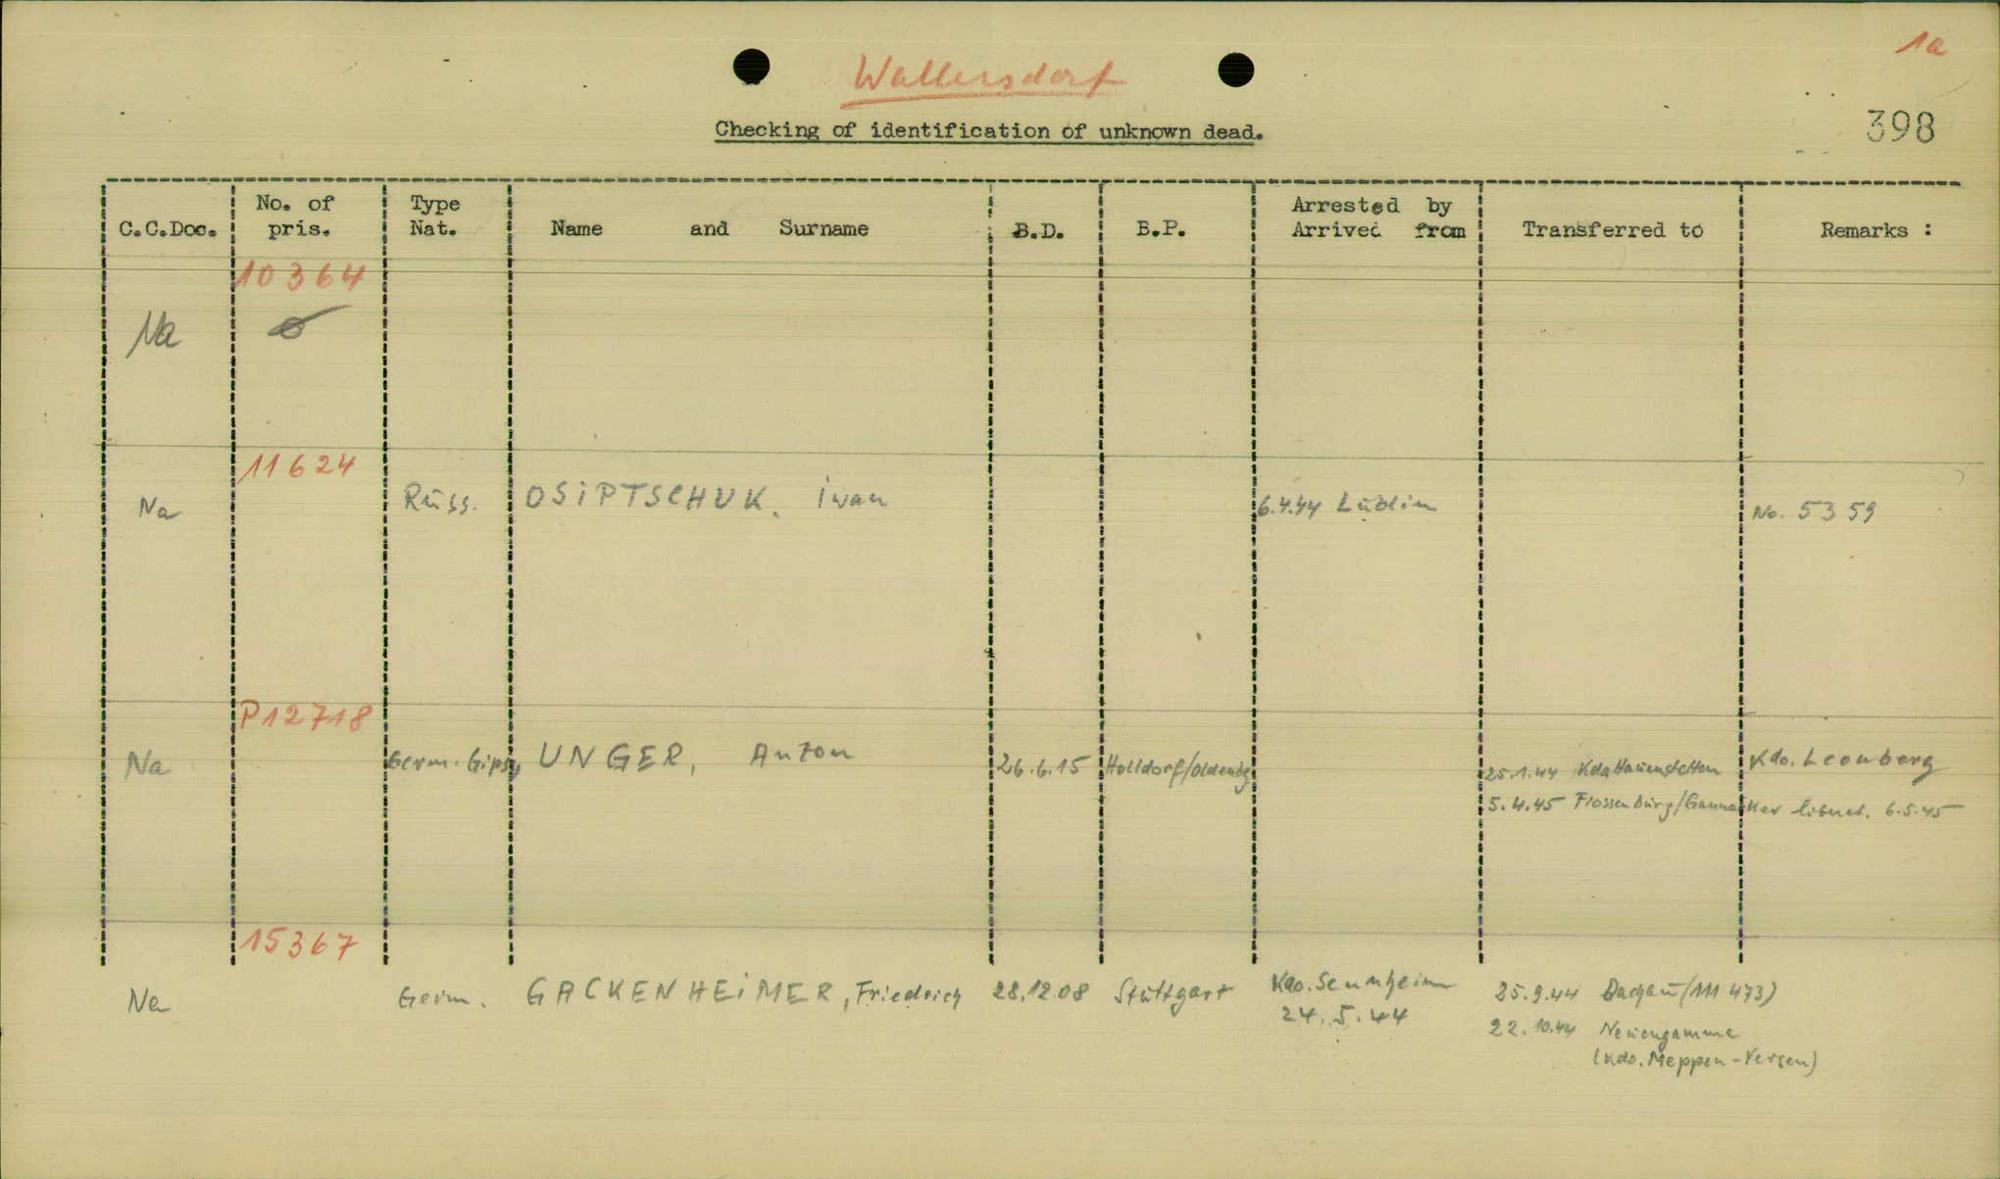 1a
Wallersdorf
398
Checking of identification of unknown dead.
C.C.Doc. No. of pris. Type Nat. Name and Surname B.D. B.P. Arrested by Arrived from Transferred to Remarks :
10364
Na
11624
Na Russ. OSIPTSCHUK, Iwan 6.4.44 Lublin No. 5359
P12718
Na Germ. Gipsy UNGER, Anton 26.6.15 Holldorf/Oldenbg 25.1.44 Kdo Haunstetten Kdo. Leonberg
5.4.45 Flossenbürg/Gannacker liberat. 6.5.45
15367
Na Germ. GACKENHEIMER, Friedrich 28.12.08 Stuttgart Kdo. Sennheim 25.9.44 Dachau (111 473)
24.5.44 22.10.44 Neuengamme
(Kdo. Meppen-Versen)